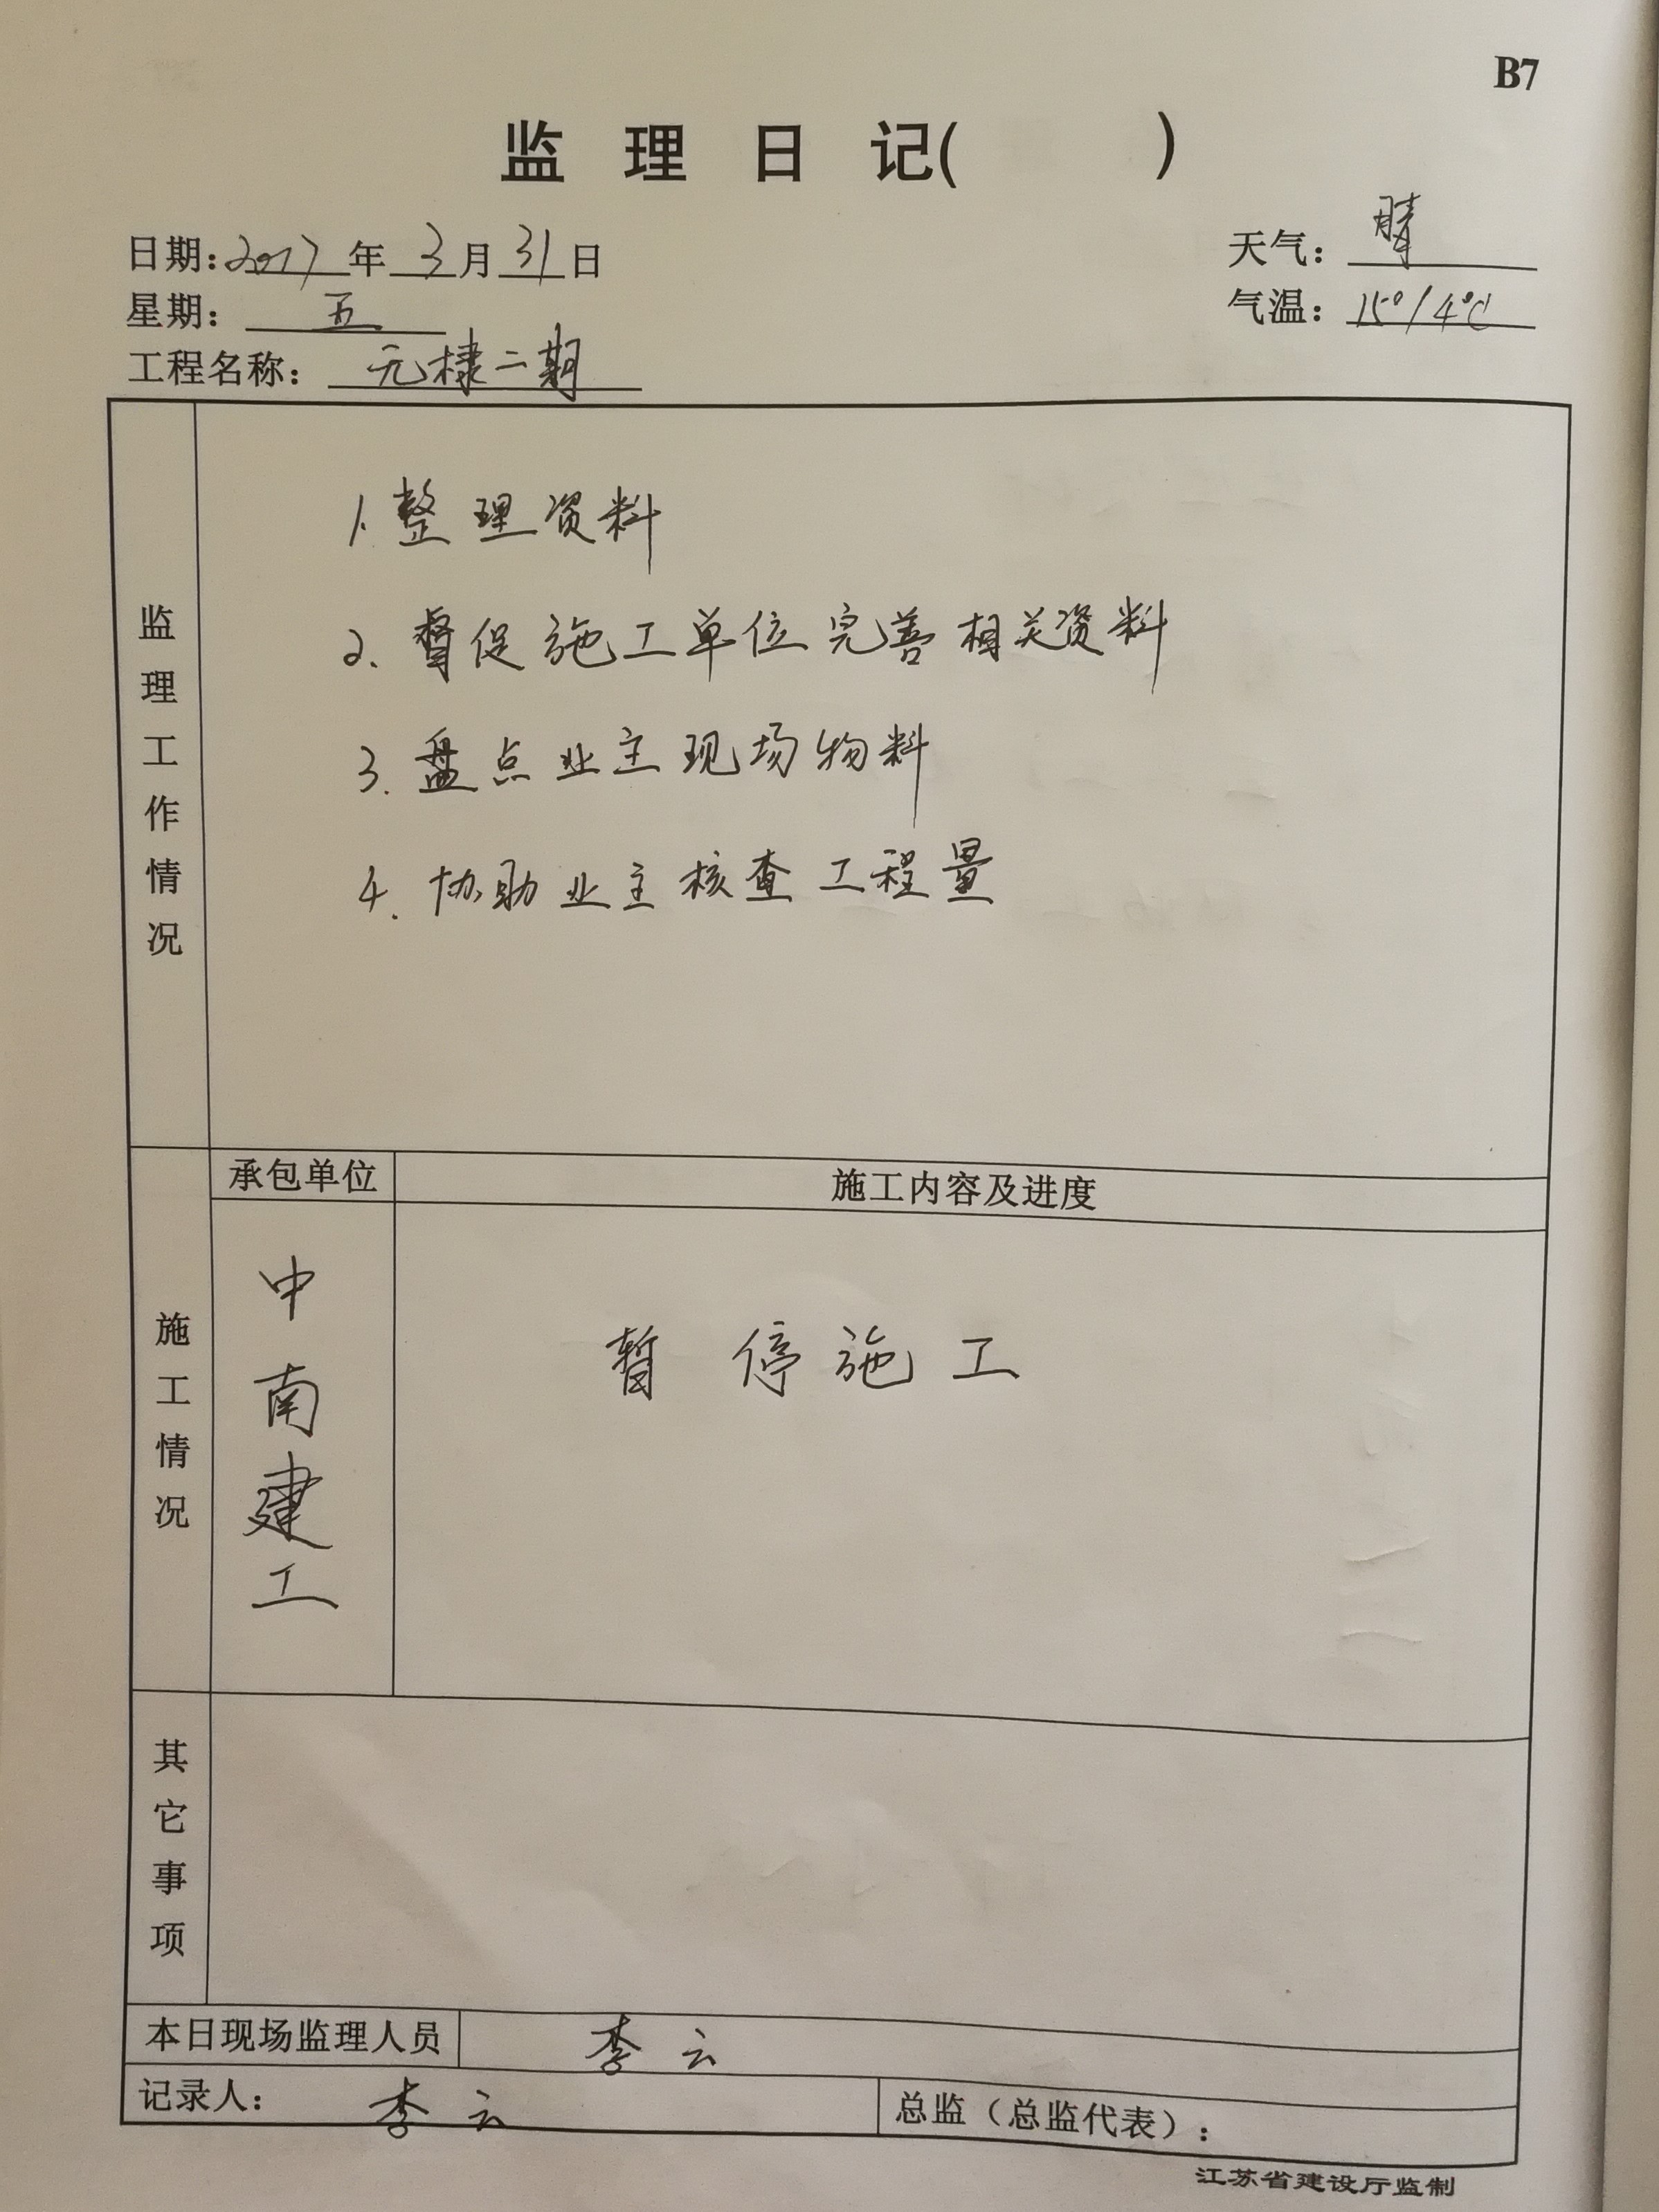 B7
监理日记(　　)
日期:2017年3月31日　天气:晴
星期:五　气温:15°/4℃
工程名称:无棣二期
监理工作情况
1.整理资料
2、督促施工单位完善相关资料
3.盘点业主现场物料
4.协助业主核查工程量
施工情况
承包单位　施工内容及进度
中南建工　暂停施工
其它事项
本日现场监理人员　李云
记录人:李云　总监(总监代表):
江苏省建设厅监制